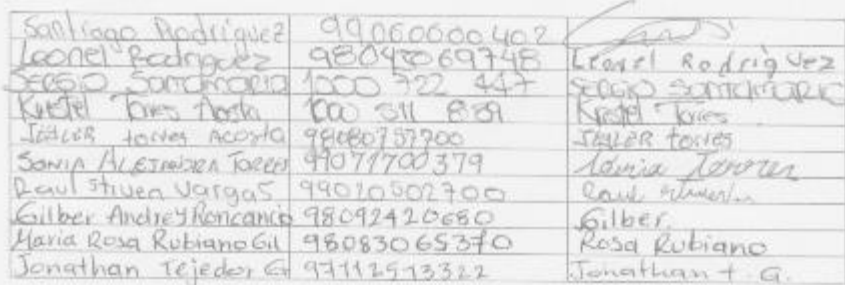 Santiago Rodriguez 99060600402
Leonel Rodriguez 98042069748 Leonel Rodriguez
Sergio Santamaria 1000 722 447 Sergio Santamaria
Kristel Torres Acosta 1000 311 839 Kristel Torres
torres Acosta 98080757700 torres
Sonia Alejandra Torres 99071700379 Sonia Torres
Raul Stiven Vargas 99010502700 Raul
Gilber Andrey Roncancio 98092420680 Gilber.
Maria Rosa Rubiano Gil 98083065370 Rosa Rubiano
Jonathan Tejedor G 97112513322 Jonathan t. G.